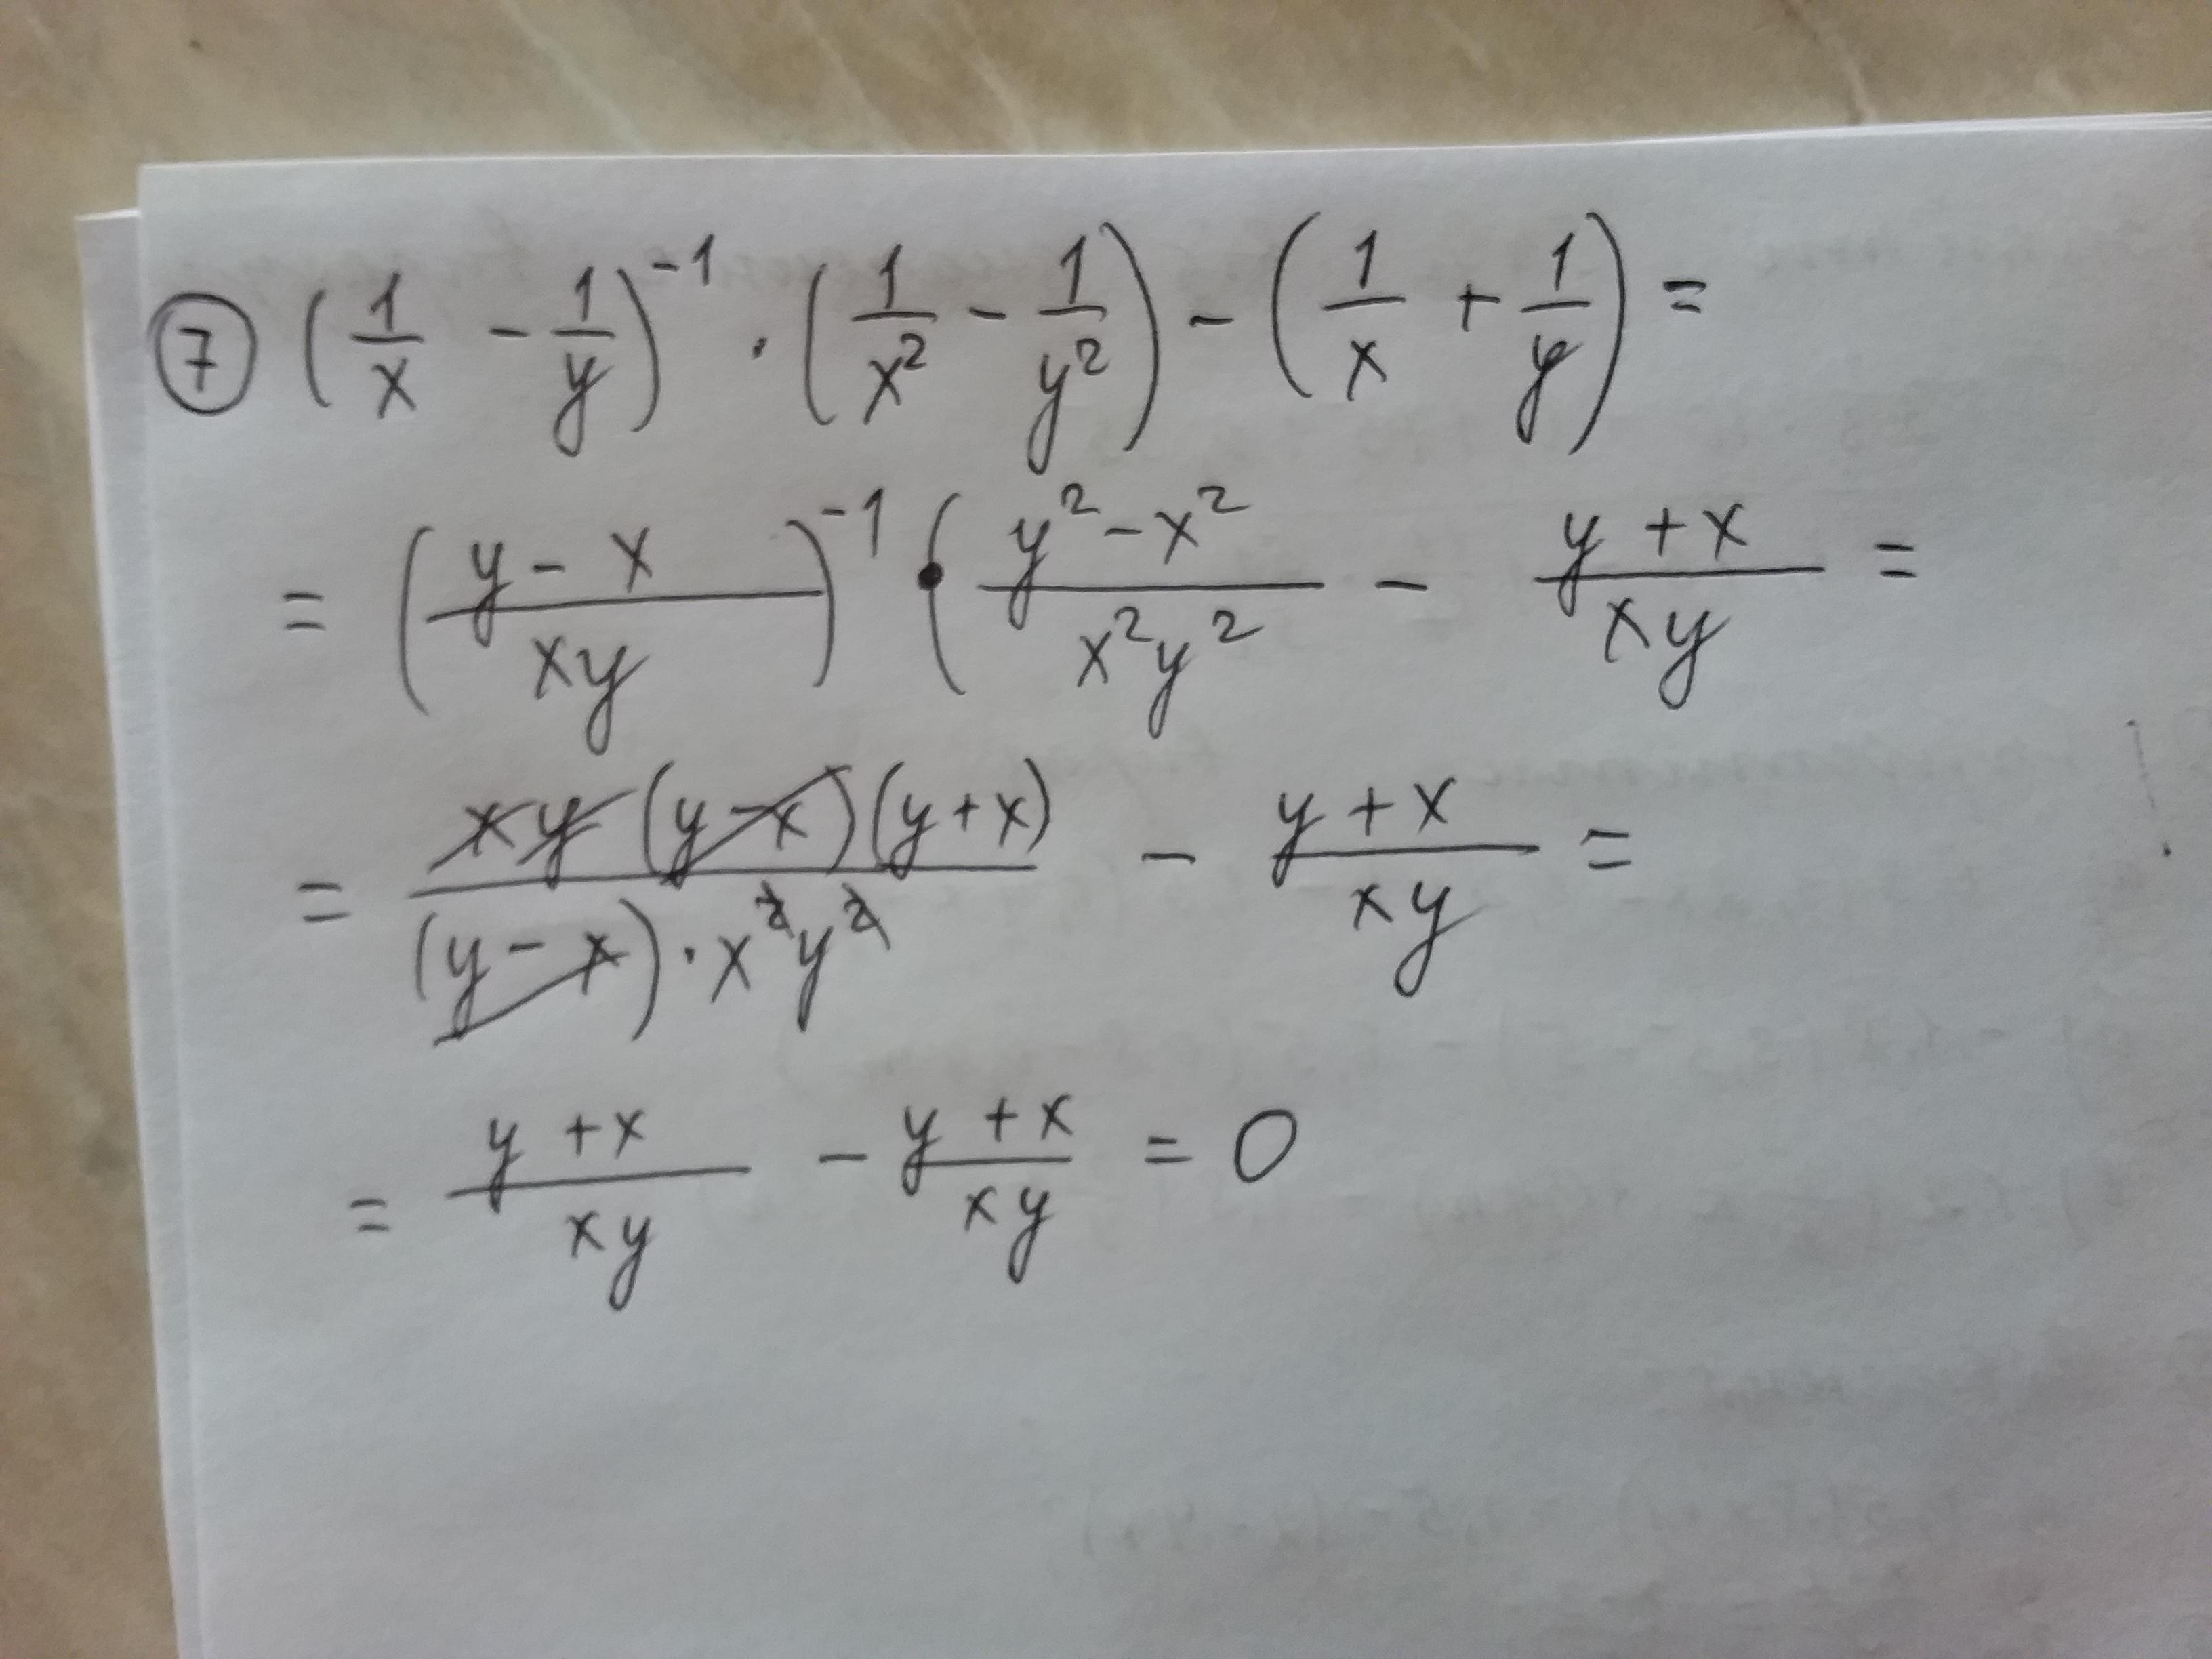 ⑦ (1/x - 1/y)^-1 · (1/x² - 1/y²) - (1/x + 1/y) =
= ((y - x)/(xy))^-1 · ( (y² - x²)/(x²y²) - (y + x)/(xy) =
= (xy(y - x)(y + x))/((y - x) · x²y²) - (y + x)/(xy) =
= (y + x)/(xy) - (y + x)/(xy) = 0